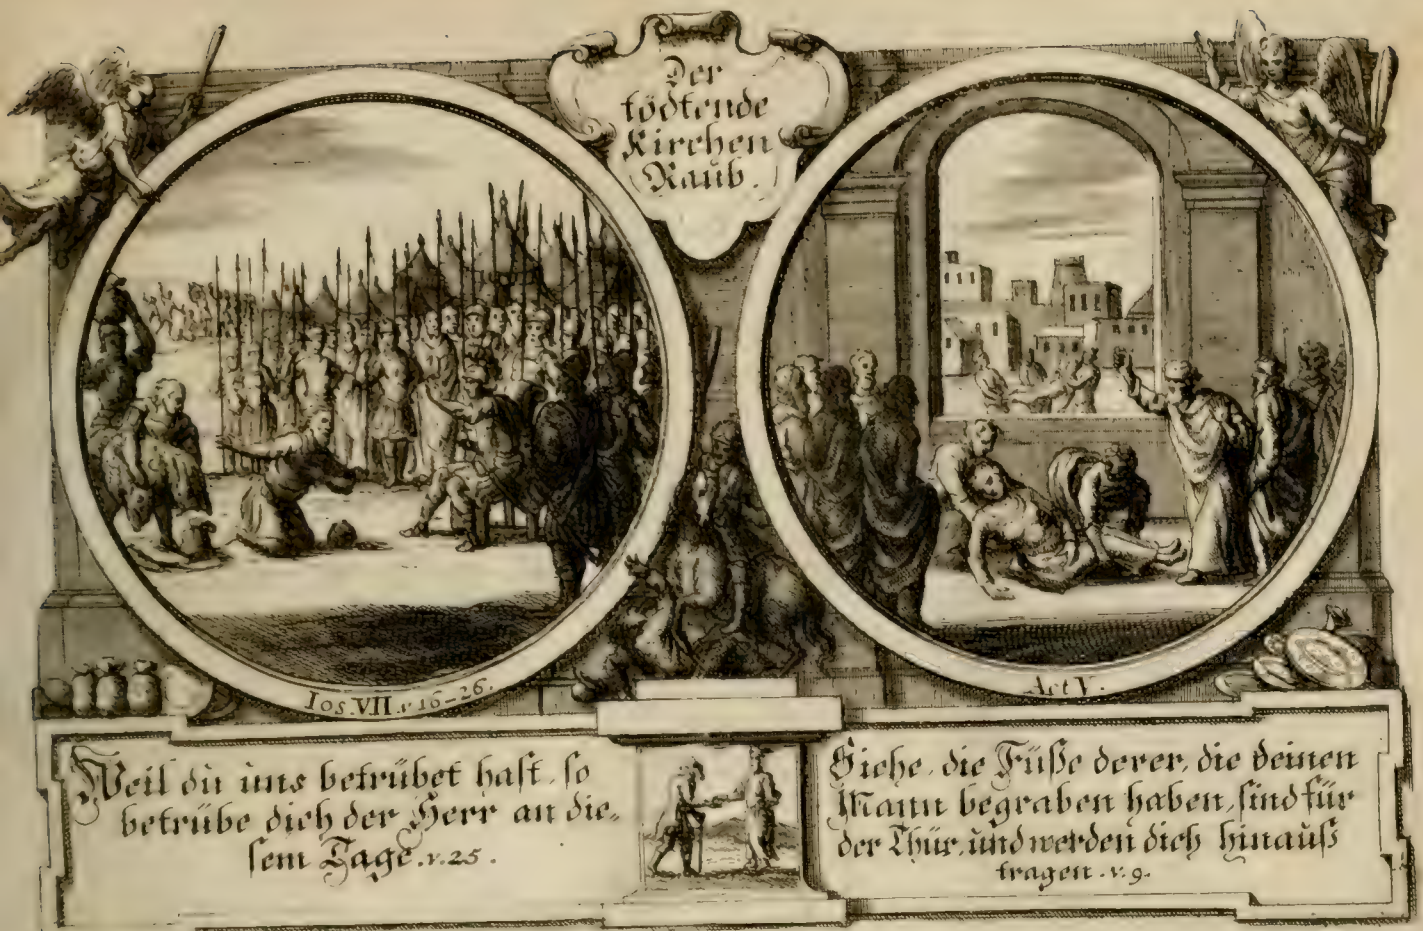 Der
tödtende
Kirchen
Raub.
Ios. VII. v 16-26.
Act V.
Weil dù ùns betrübet hast, so
betrübe dich der Herr an die-
sem Tage. v. 25.
Siehe, die Füße derer, die deinen
Mann begraben haben, sind für
der Thür, ùnd werden dich hinaùß
tragen. v. 9.